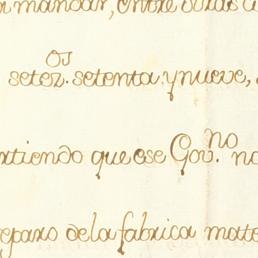 a mandar, entre otras c
setez.os setenta y nueve,
rtiendo que ese Gov.no no
reparo de la fabrica mate